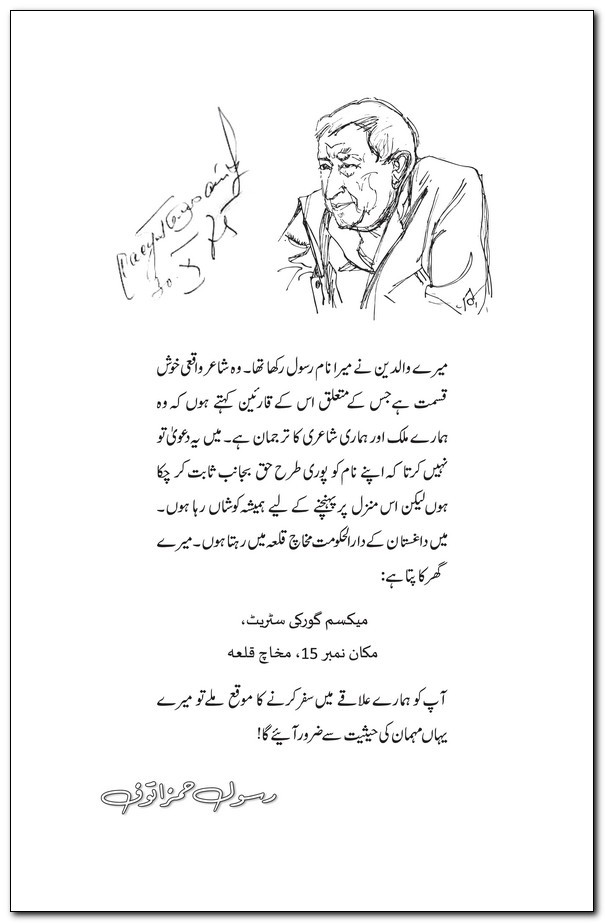 میرے والدین نے میرا نام رسول رکھا تھا۔ وہ شاعر واقعی خوش
قسمت ہے جس کے متعلق اس کے قارئین کہتے ہوں کہ وہ
ہمارے ملک اور ہماری شاعری کا ترجمان ہے۔ میں یہ دعویٰ تو
نہیں کرتا کہ اپنے نام کو پوری طرح حق بجانب ثابت کر چکا
ہوں لیکن اس منزل پر پہنچنے کے لیے ہمیشہ کوشاں رہا ہوں۔
میں داغستان کے دارالحکومت مخاچ قلعہ میں رہتا ہوں۔ میرے
گھر کا پتا ہے:
میکسم گورکی سٹریٹ،
مکان نمبر 15، مخاچ قلعہ
آپ کو ہمارے علاقے میں سفر کرنے کا موقع ملے تو میرے
یہاں مہمان کی حیثیت سے ضرور آئیے گا!
رسول حمزاتوف